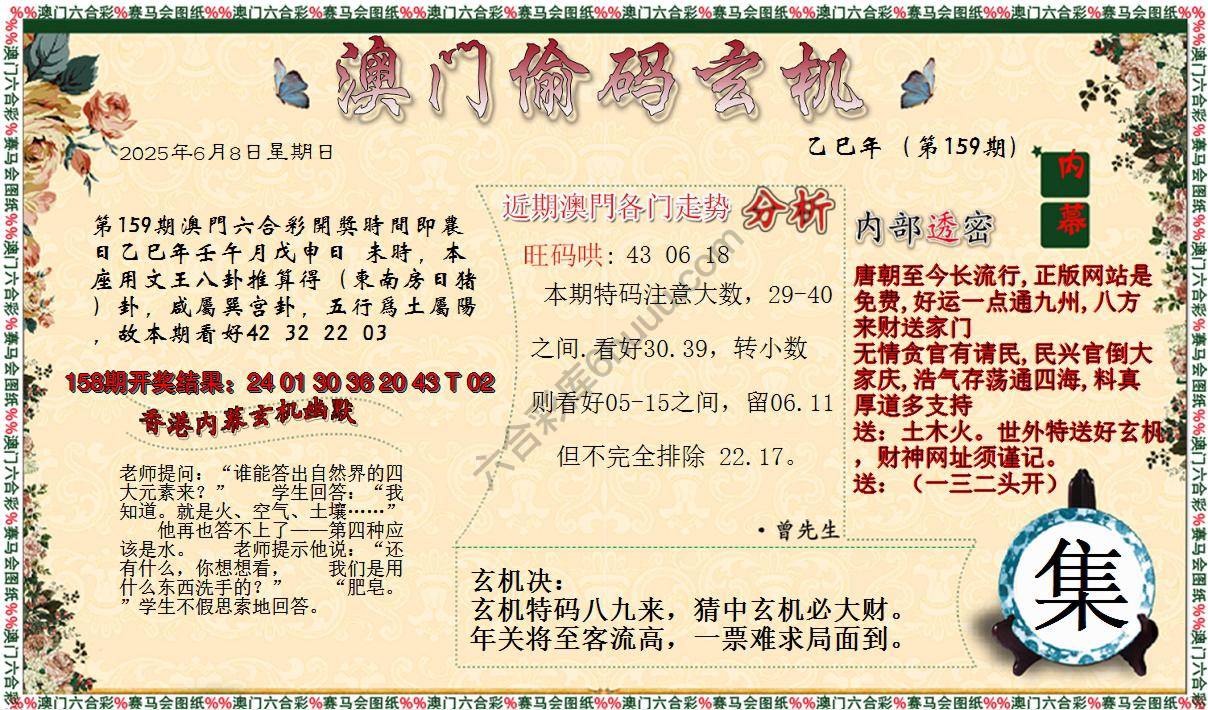 %%澳门六合彩%赛马会图纸%%澳门六合彩%赛马会图纸%%澳门六合彩%赛马会图纸%%澳门六合彩%赛马会图纸%%澳门六合彩%赛马会图纸%%澳门六合彩%赛马会图纸%%
澳门偷码玄机
2025年6月8日星期日
乙巳年（第159期）
第159期澳門六合彩開獎時間即農
日乙巳年壬午月戊申日 未時，本
座用文王八卦推算得（東南房日猪
）卦，咸屬巽宫卦，五行爲土屬陽
，故本期看好42 32 22 03
158期开奖结果：24 01 30 36 20 43 T 02
香港内幕玄机幽默
老师提问：“谁能答出自然界的四
大元素来？” 学生回答：“我
知道。就是火、空气、土壤……”
他再也答不上了——第四种应
该是水。 老师提示他说：“还
有什么，你想想看， 我们是用
什么东西洗手的？” “肥皂。
”学生不假思索地回答。
近期澳門各门走势 分析
旺码哄: 43 06 18
本期特码注意大数，29-40
之间.看好30.39，转小数
则看好05-15之间，留06.11
但不完全排除 22.17。
·曾先生
玄机决：
玄机特码八九来，猜中玄机必大财。
年关将至客流高，一票难求局面到。
内部透密
内幕
唐朝至今长流行,正版网站是
免费,好运一点通九州,八方
来财送家门
无情贪官有请民,民兴官倒大
家庆,浩气存荡通四海,料真
厚道多支持
送：土木火。世外特送好玄机
，财神网址须谨记。
送：（一三二头开）
集